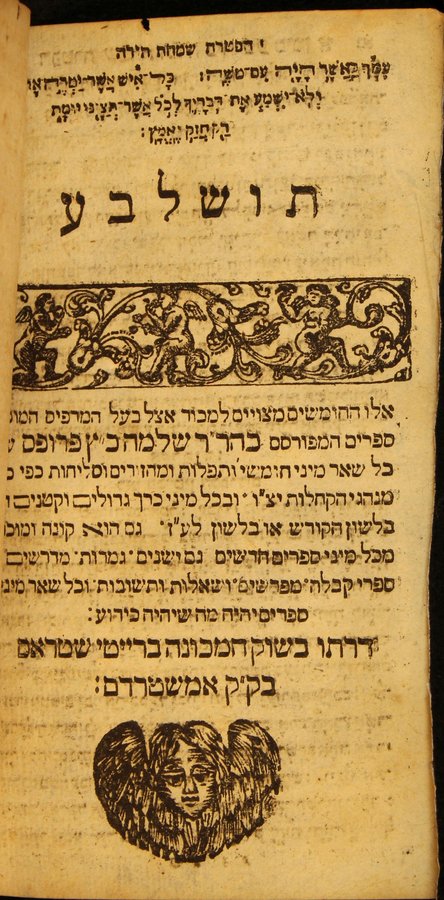 הפטרת שמחת תורה
עִמָּךְ כַּאֲשֶׁר הָיָה עִם־מֹשֶׁה׃ כָּל־אִישׁ אֲשֶׁר־יַמְרֶה אֶת
וְלֹא־יִשְׁמַע אֶת־דְּבָרֶיךָ לְכֹל אֲשֶׁר־תְּצַוֶּנּוּ יוּמָת
רַק חֲזַק וֶאֱמָץ׃
תושלבע
אלו החומשים מצויים למכור אצל בעל המדפיס המו
ספרים המפורסם בהר״ר שלמה כ״ץ פרופס
כל שאר מיני חומשי׳ ותפלות ומחזורים וסליחות כפי
מנהגי הקהלות יצ״ו ׳ ובכל מיני כרך גדולים וקטנים
בלשון הקודש או בלשון לע״ז ׳ גם הוא קונה ומוכ
מכל מיני ספרים חדשים גם ישנים ׳ גמרות ׳ מדרשים
ספרי קבלה ׳ מפרשים ׳ ושאלות ותשובות ׳ וכל שאר מיני
ספרים יהיה מה שיהיה כידוע ׃
דרתו בשוק המכונה ברייטי שטראס
בק״ק אמשטרדם׃